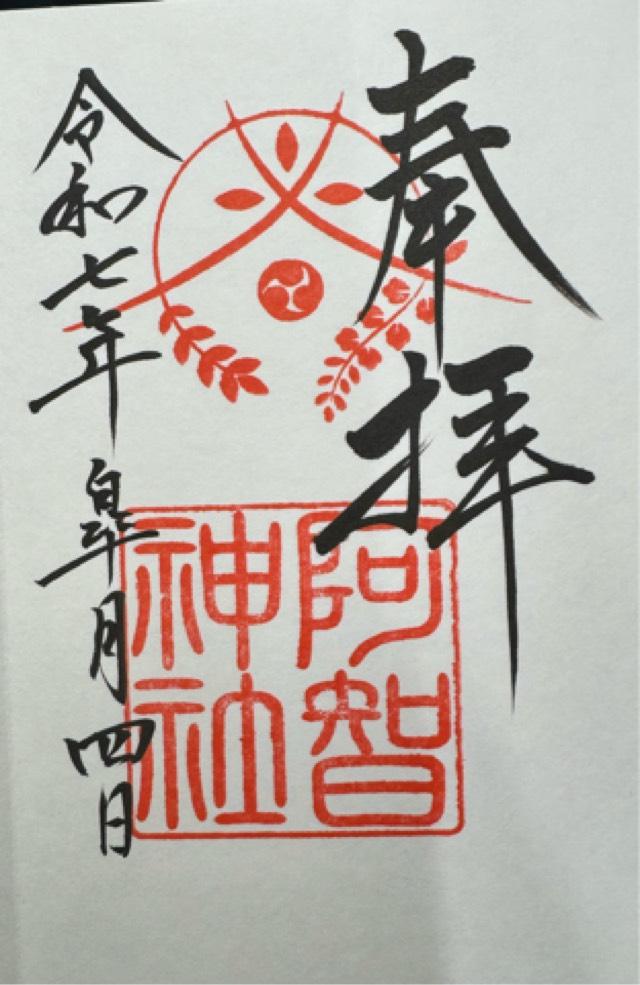 奉拝
阿智
神社
令和七年 皐月四日